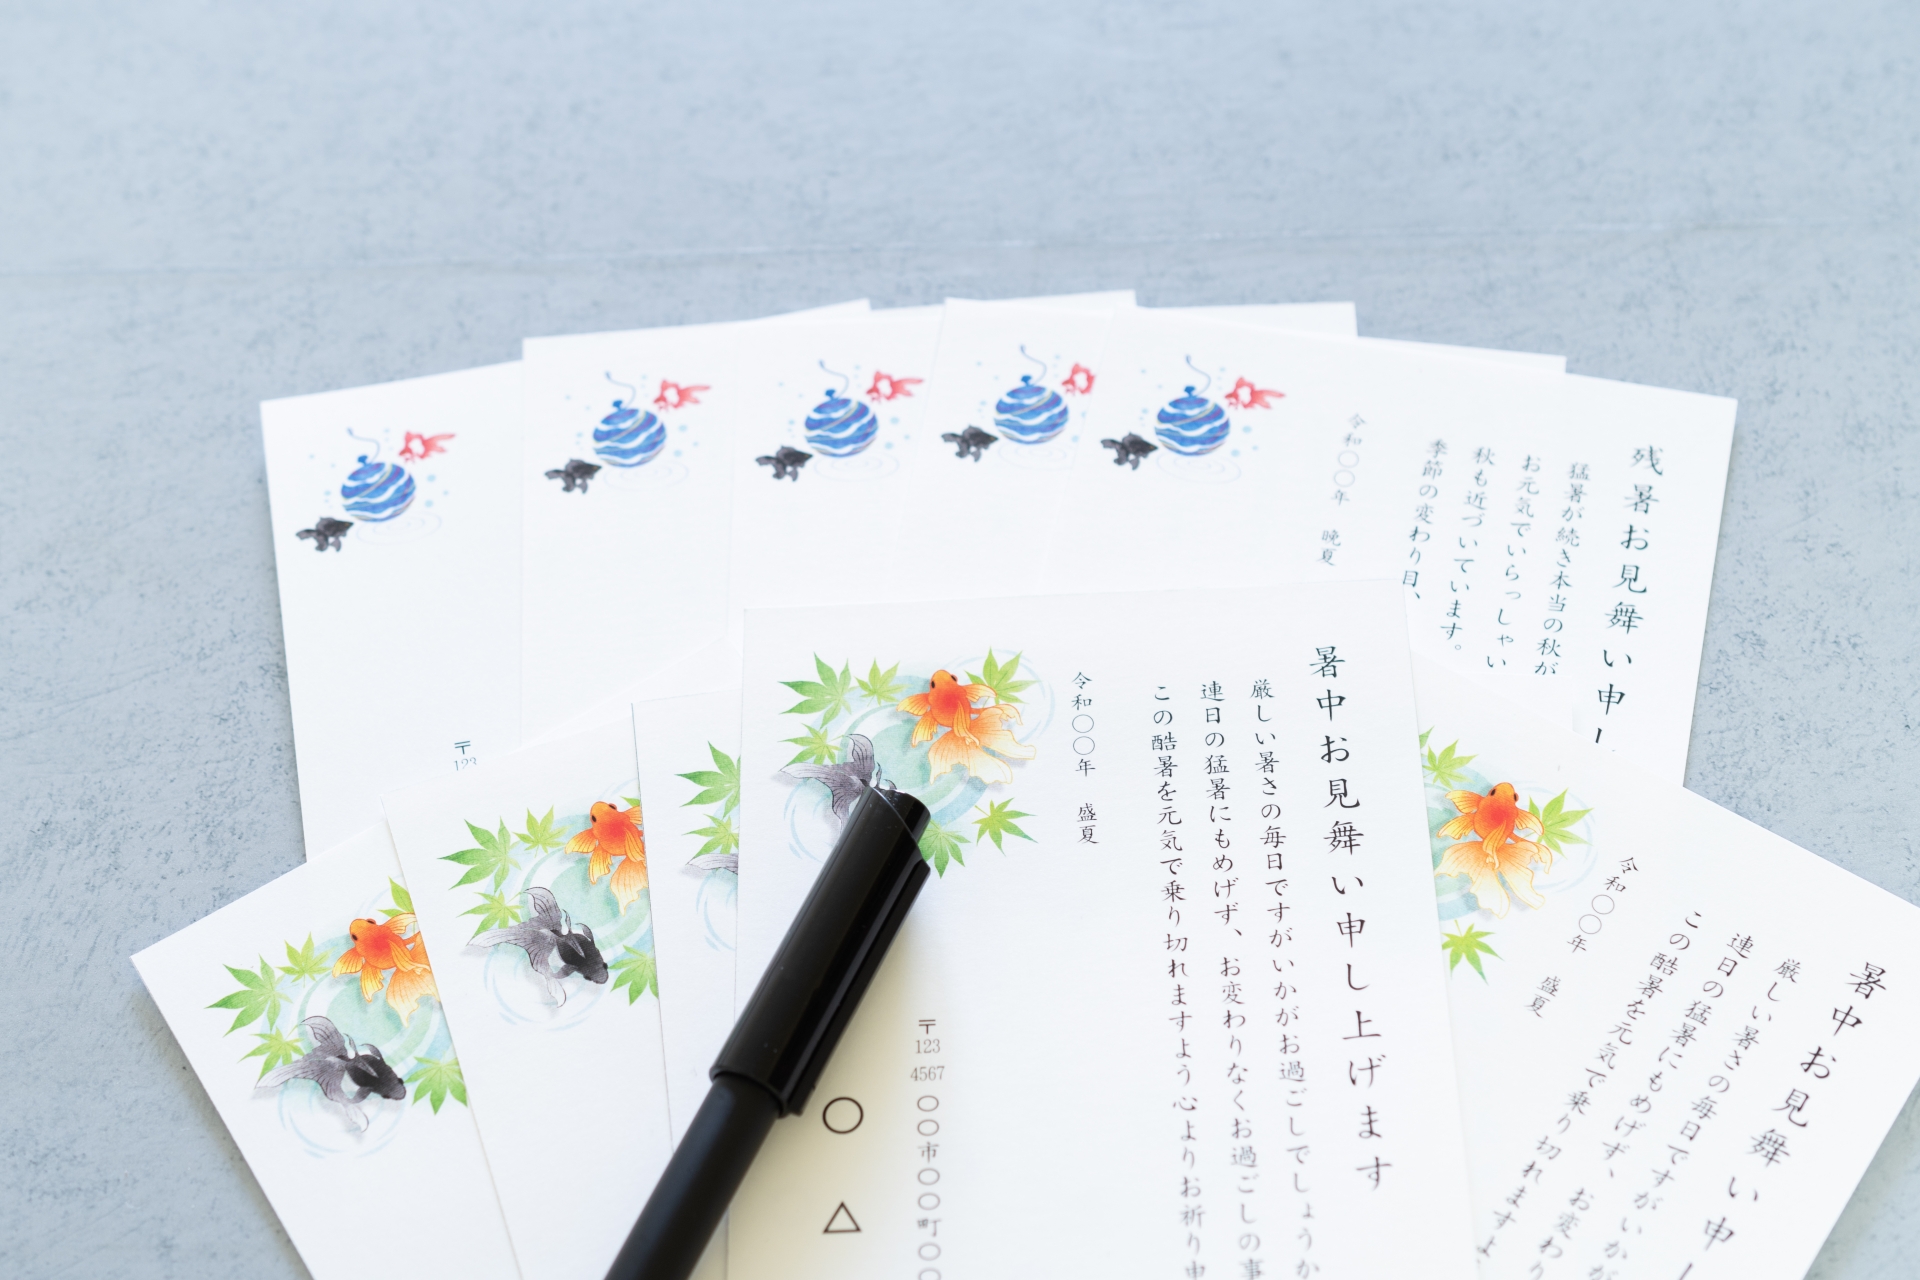 残暑お見舞い申し
猛暑が続き本当の秋が
お元気でいらっしゃい
秋も近づいています。
季節の変わり目、
令和〇〇年 晩夏
〒
123
暑中お見舞い申し上げます
厳しい暑さの毎日ですがいかがお過ごしでしょうか
連日の猛暑にもめげず、お変わりなくお過ごしの事
この酷暑を元気で乗り切れますよう心よりお祈り申
令和〇〇年 盛夏
〒
123
4567
〇〇市〇〇町〇〇
〇 △
暑中お見舞い申し
厳しい暑さの毎日ですがいかが
連日の猛暑にもめげず、お変わり
この酷暑を元気で乗り切れますよ
令和〇〇年 盛夏